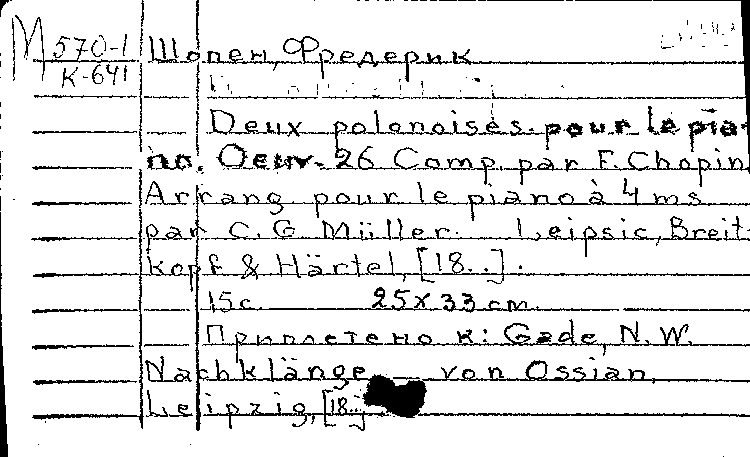 М 570-1 Шопен, Фредерик
К-641
Deux polonoises pour le pia-
no. Oeuv. 26 Comp. par F. Chopin
Arrang pour le piano à 4 ms
par C. G Müller. Leipsic, Breit-
kopf & Härtel, [18..].
15 с. 25 x 33 см.
Приплетено к: Gade, N. W.
Nachklänge von Ossian,
Leipzig, [18..]